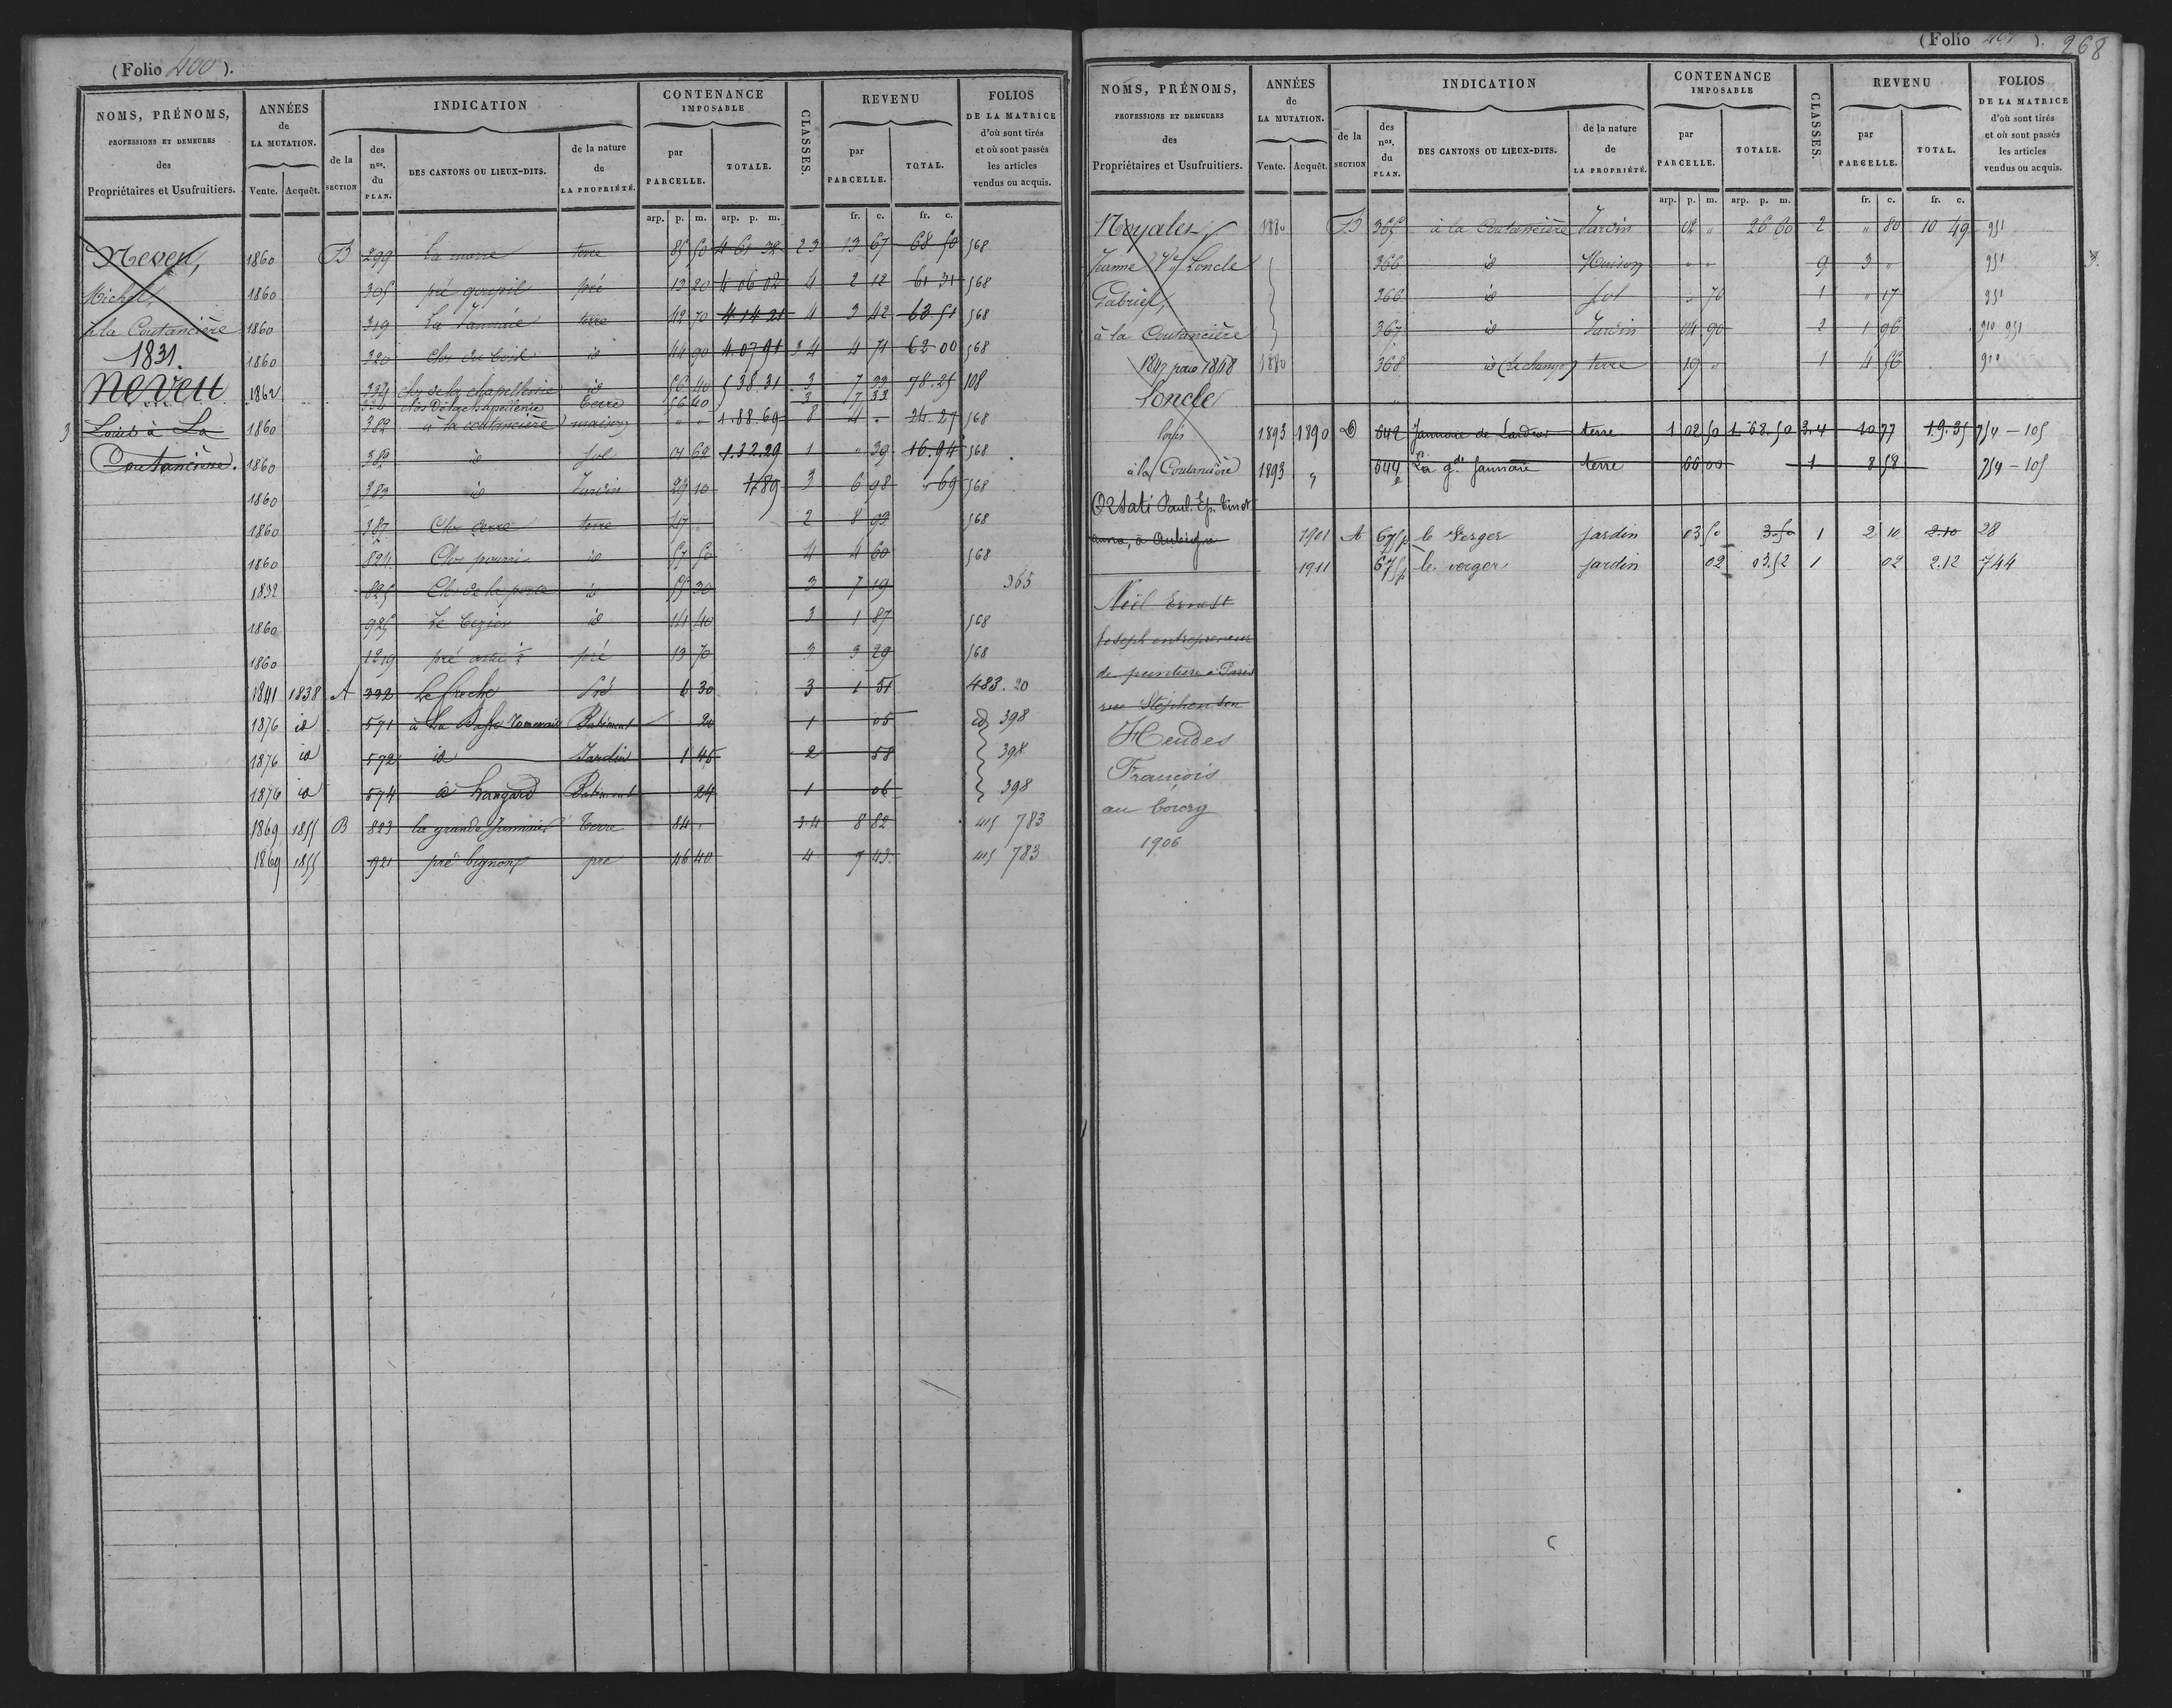 (Folio 400).
NOMS, PRÉNOMS,
PROFESSIONS ET DEMEURES
des
Propriétaires et Usufruitiers.
ANNÉES
de
LA MUTATION.
Vente. Acquêt.
INDICATION
de la
SECTION
des
nos.
du
PLAN.
DES CANTONS OU LIEUX-DITS.
de la nature
de
LA PROPRIÉTÉ.
CONTENANCE
IMPOSABLE
par
PARCELLE.
TOTALE.
CLASSES.
REVENU
par
PARCELLE.
TOTAL.
FOLIOS
DE LA MATRICE
d'où sont tirés
et où sont passés
les articles
vendus ou acquis.
arp. p. m. arp. p. m. fr. c. fr. c.
Neveu,
Michel,
à la Coutancière
1831.
Neveu
Louis à La
Coutancière.
3
1860 B 299 La marre terre 85 50 4 61 38 2 3 13 67 68 50 568
1860 305 pré goupil pré 19 20 4 06 02 4 2 12 61 31 568
1860 319 La Jannaie terre 42 70 4 14 21 4 3 42 63 51 568
1860 320 Clos du bois id 44 90 4.07 91 3 4 4 71 62.00 568
1862 334 clos de la chapellenie id 56 40 5 38 31 3 7 33 78.25 108
334 clos de la chapellenie terre 56 40 3 7 33
1860 382 à la coutancière maison " " 1.88.69 8 4 . 24.27 568
1860 382 id sol 01 62 1.32.29 1 " 39 16.94 568
1860 383 id Jardin 29 10 1.89 3 6 98 " 69 568
1860 387 Clos terre 2 8 99 568
1860 824 Clos pourri id 57 50 4 4 60 568
1832 825 Clos de la porte id 55 30 3 7 19 365
1860 925 id 14 40 3 1 87 568
1860 1219 pré pré 13 70 3 3 29 568
1841 1838 A 332 Le Pré 6 30 3 1 51 483.20
1876 id 571 à La Basse Bâtiment 20 1 05 id 398
1876 id 572 id Jardin 1 45 2 58 398
1876 id 574 id hangard Bâtiment 24 1 06 398
1869 1855 B 823 la grande Jannaie Terre 84 . 3.4 8 82 415 783
1869 1855 921 pré bignon pre 46 40 4 7 43 415 783
(Folio 401). 268
NOMS, PRÉNOMS,
PROFESSIONS ET DEMEURES
des
Propriétaires et Usufruitiers.
ANNÉES
de
LA MUTATION.
Vente. Acquêt.
INDICATION
de la
SECTION
des
nos.
du
PLAN.
DES CANTONS OU LIEUX-DITS.
de la nature
de
LA PROPRIÉTÉ.
CONTENANCE
IMPOSABLE
par
PARCELLE.
TOTALE.
CLASSES.
REVENU
par
PARCELLE.
TOTAL.
FOLIOS
DE LA MATRICE
d'où sont tirés
et où sont passés
les articles
vendus ou acquis.
arp. p. m. arp. p. m. fr. c. fr. c.
Noyales,
Jeanne Ve Loncle
Gabriel,
à la Coutancière
1847 pour 1848
Loncle
louis
à la Coutancière
1880 B 365 à la Coutancière Jardin 02 " 26 60 2 " 80 10 49 951
366 id Maison " " 9 3 " 951
366 id sol " 70 1 " 17 951
367 id Jardin 04 90 2 1 96 910 951
1880 368 id (Le champ) terre 19 " 1 4 56 910
1893 1890 D 642 Jannaie de terre 1 02 50 1.68.50 3.4 10 77 19.35 754 – 105
1893 " 644 La gde jannaie terre 66 00 1 8 58 754 – 105
Orsati Paul. Ep. Binet
anna, à Aubigné
1901 A 675p le Verger jardin 03 50 3.50 1 2 10 2.10 28
1911 675p le verger jardin 02 03.52 1 02 2.12 744
Noël Ernest
Joseph entrepreneur
de peinture à Paris
rue Stephenson
Heudes
François
au bourg
1906